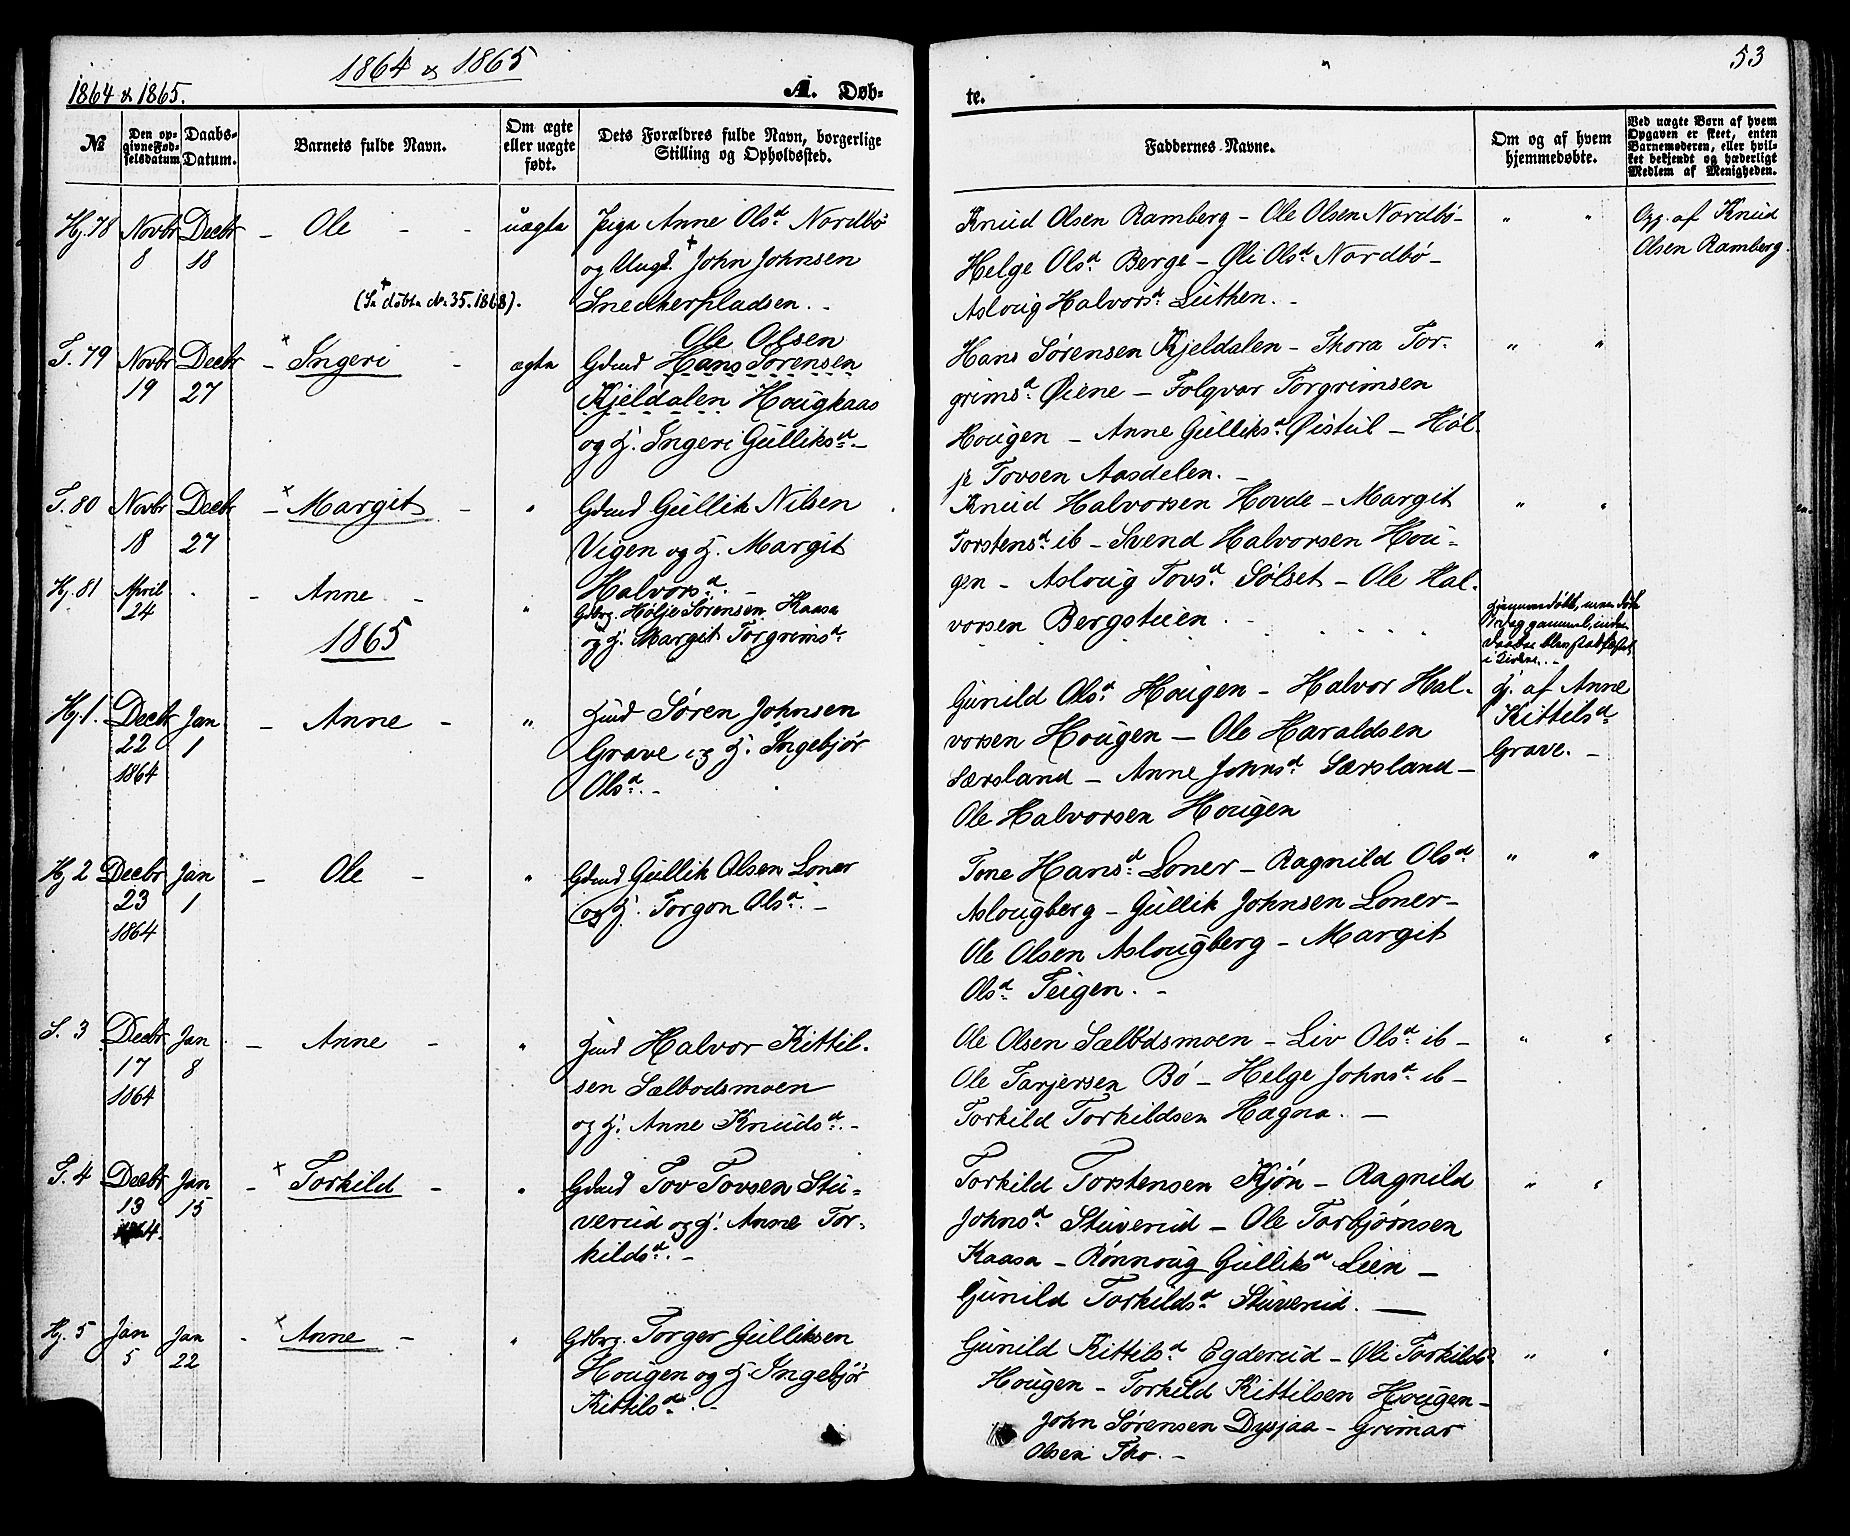 1864 & 1865
53
1864 & 1865.
A. Døb-
te.
№
Den op-
givne Fød-
selsdatum
Daabs-
Datum.
Barnets fulde Navn.
Om ægte
eller uægte
født.
Dets Forældres fulde Navn, borgerlige
Stilling og Opholdssted.
Faddernes Navne.
Om og af hvem
hjemmedøbte.
Ved uægte Børn af hvem
Opgaven er skeet, enten
Barnemoderen, eller hvil-
ket bekjendt og hæderligt
Medlem af Menigheden.
Hj. 78 Novbr 8 Decbr 18 - Ole - - uægta
Piga Anne Olsd. Nordbø
og Ungk. John Johnsen
Snedkerpladsen. -
(Se døbte No. 35. 1868).
Knud Olsen Ramberg - Ole Olsen Nordbø -
Helge Olsd. Berge - Øli Olsd. Nordbø -
Asloug Halvorsd. Luthen. -
" "
Opg. af Knud
Olsen Ramberg.
T. 79 Novbr 19 Decbr 27 - Ingeri - ægta
Ole Olsen
Gdmd Hans Sørensen
Kjeldalen Hougkaas
og H. Ingeri Gulliksd. -
Hans Sørensen Kjeldalen - Thora Tor-
grimsd. Øiene - Folqvar Torgrimsen
Hougen - Anne Gulliksd. Øistul - Høl-
je Tovsen Aasdelen. -
" "
T. 80 Novbr 18 Decbr 27 - Margit - "
Gdmd Gullik Nilsen
Vigen og H. Margit
Halvorsd. -
Knud Halvorsen Hovde - Margit
Torstensd. ib - Svend Halvorsen Hou-
gen - Asloug Tovsd. Sølset - Ole Hal-
vorsen Bergstuen. -
" "
Hj. 81 April 24 - Anne - "
Gdbrg. Hølje Sørensen Kaasa
og H. Margit Torgrimsd.
Hjemmedøbt,
gammel,
1865
Hj. 1. Decbr 22 1864 Jan 1 - Anne - "
Hmd Søren Johnsen
Grave og H. Ingebjør
Olsd. -
Gunild Olsd. Hougen - Halvor Hal-
vorsen Hougen - Ole Haraldsen
Særsland - Anne Johnsd. Særsland -
Ole Halvorsen Hougen
H. af Anne
Kittilsd.
Grave. -
Hj 2 Decbr 23 1864 Jan 1 - Ole - "
Gdmd Gullik Olsen Loner
og H. Torgon Olsd. -
Tone Hansd. Loner - Ragnild Olsd.
Aslougberg - Gullik Johnsen Loner -
Ole Olsen Aslougberg - Margit
Olsd. Teigen. -
" "
S. 3 Decbr 17 1864 Jan 8 - Anne - "
Hmd Halvor Kittil-
sen Sælbodsmoen
og H. Anne Knudsd. -
Ole Olsen Sælbodsmoen - Liv Olsd. ib -
Ole Tarjersen Bø - Helge Johnsd. ib -
Torkild Torkildsen Hagna. -
" "
T. 4 Decbr 13 1864. Jan 15 - Torkild - "
Gdmd Tov Tovsen Stu-
verud og H. Anne Tor-
kildsd. -
Torkild Torstensen Kjøn - Ragnild
Johnsd. Stuverud - Ole Torbjørnsen
Kaasa - Rønnoug Gulliksd. Lien -
Gunild Torkildsd. Stuverud. -
" "
Hj. 5 Jan 5 Jan 22 - Anne - "
Gdbrg. Torger Gulliksen
Hougen og H Ingebjør
Kittilsd. -
Gunild Kittilsd. Egderud - Øli Torkildsd.
Hougen - Torkild Kittilsen Hougen -
John Sørensen Dysjaa - Grimar
Olsen Tho. -
" "